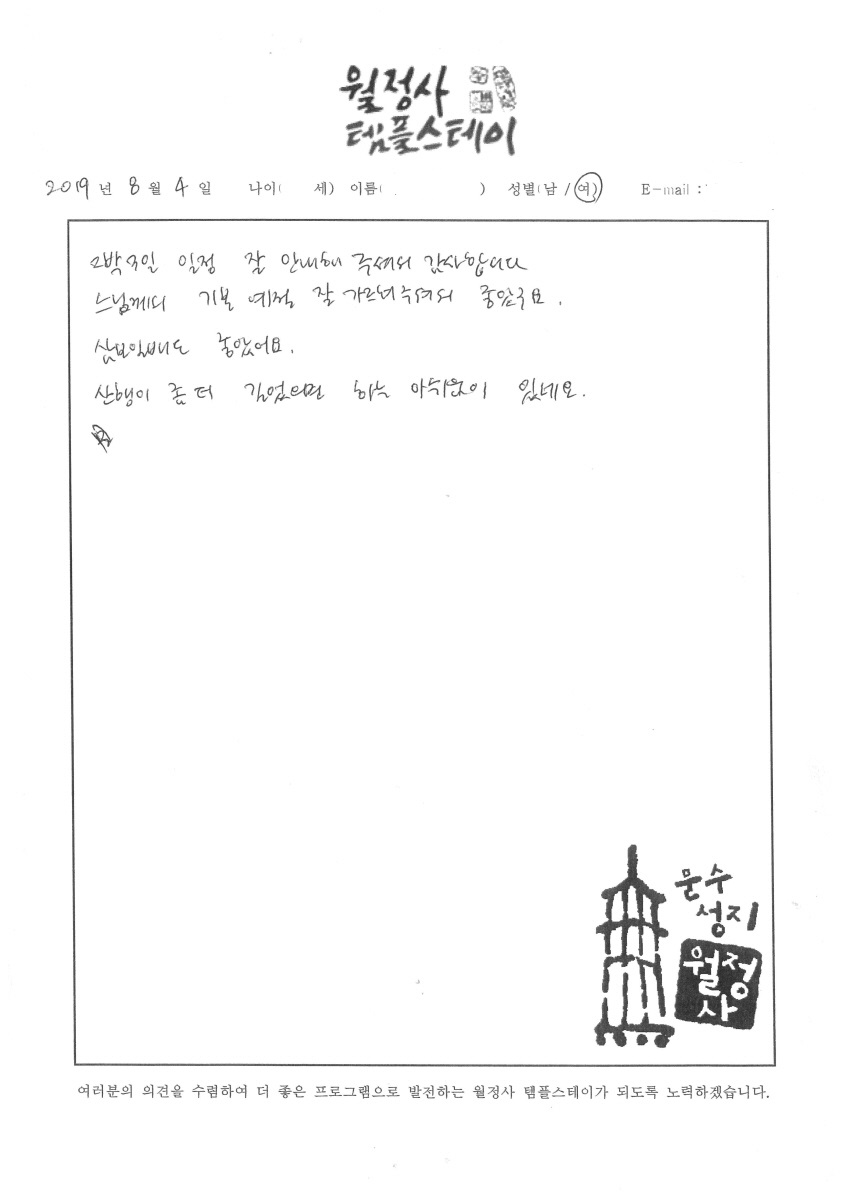 월정사
템플스테이
2019 년 8 월 4 일 나이( 세) 이름( ) 성별(남 / 여) E-mail :
2박3일 일정 잘 안내해 주셔서 감사합니다
스님께서 기본 예절 잘 가르쳐주셔서 좋았구요.
삼보일배도 좋았어요.
산행이 좀 더 길었으면 하는 아쉬움이 있네요.
문수
성지
월정
사
여러분의 의견을 수렴하여 더 좋은 프로그램으로 발전하는 월정사 템플스테이가 되도록 노력하겠습니다.